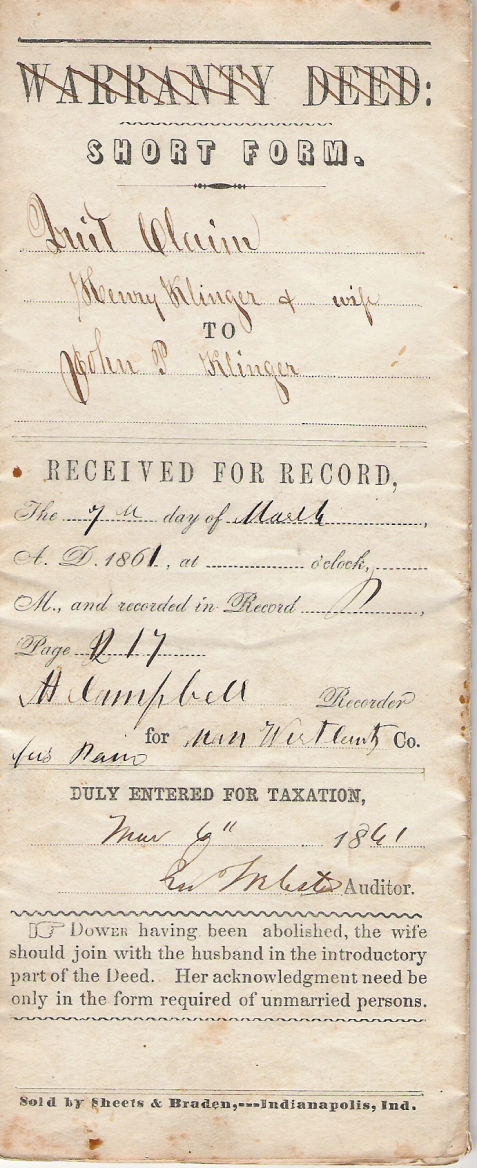 WARRANTY DEED:
SHORT FORM.
Quit Claim
Henry Klinger & wife
TO
John P Klinger
RECEIVED FOR RECORD,
The 7th day of March,
A. D. 1861, at o'clock,
M., and recorded in Record P,
Page 217
H Campbell Recorder
for Co.
fees Paid
DULY ENTERED FOR TAXATION,
Mar 6" 1861
Webster Auditor.
☞ DOWER having been abolished, the wife
should join with the husband in the introductory
part of the Deed. Her acknowledgment need be
only in the form required of unmarried persons.
Sold by Sheets & Braden,---Indianapolis, Ind.